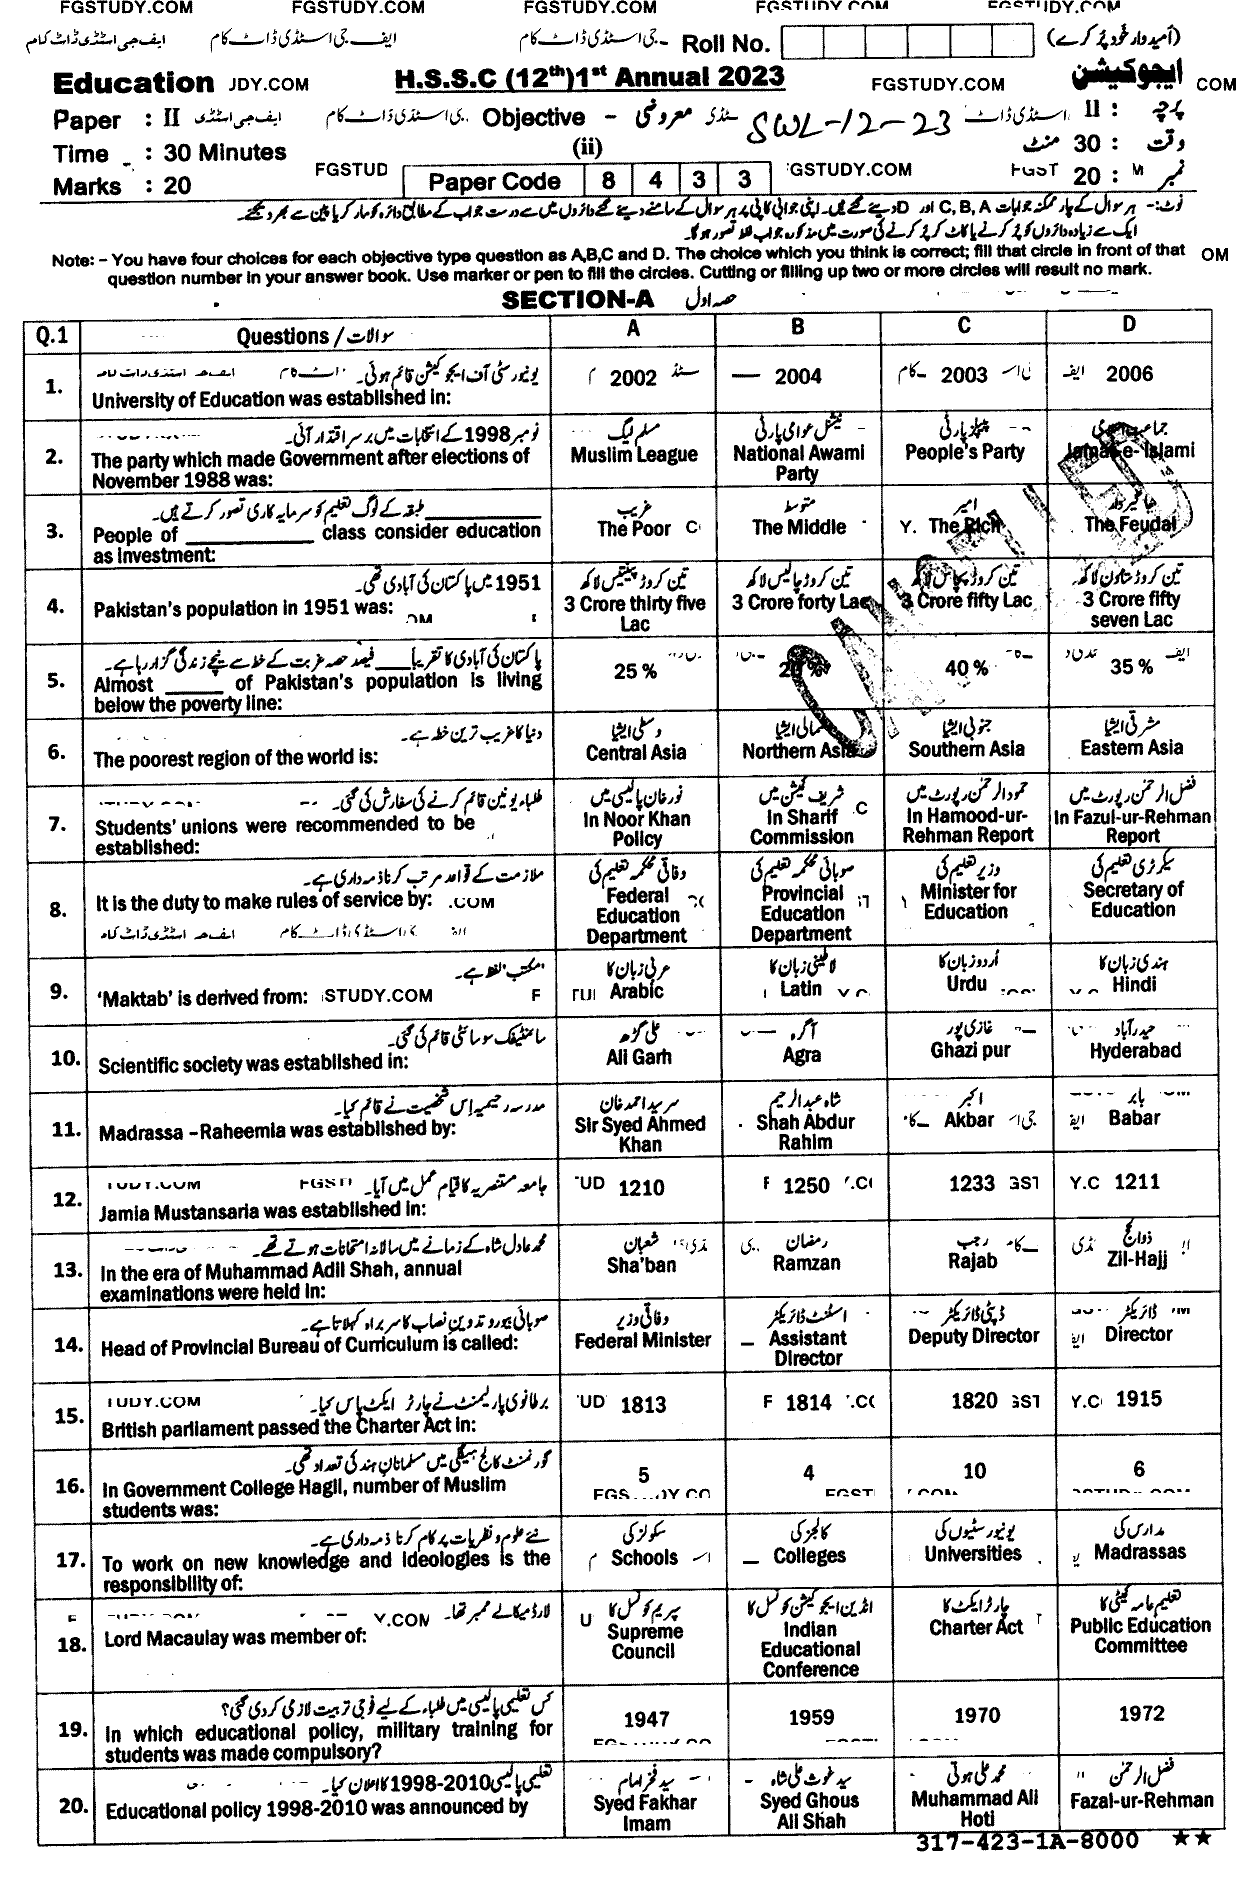 FGSTUDY.COM FGSTUDY.COM FGSTUDY.COM FGSTUDY.COM FGSTUDY.COM
ایف جی اسٹڈی ڈاٹ کام ایف جی اسٹڈی ڈاٹ کام جی اسٹڈی ڈاٹ کام Roll No. (امیدوار خود پُر کرے)
Education JDY.COM H.S.S.C (12th)1st Annual 2023 FGSTUDY.COM ایجوکیشن COM
Paper : II ایف جی اسٹڈی ی اسٹڈی ڈاٹ کام Objective - معروضی سٹڈی SWL-12-23 اسٹڈی ڈاٹ پرچہ : II
Time : 30 Minutes (ii) وقت : 30 منٹ
Marks : 20 FGSTUD Paper Code 8 4 3 3 GSTUDY.COM FGST نمبر : 20 M
نوٹ:- ہر سوال کے چار ممکنہ جوابات A, B, C اور D دیئے گئے ہیں۔ اپنی جوابی کاپی پر ہر سوال کے سامنے دیئے گئے دائروں میں سے درست جواب کے مطابق دائرہ کو مارکر یا پین سے بھر دیجئے۔
ایک سے زیادہ دائروں کو پُر کرنے یا کاٹ کر پُر کرنے کی صورت میں مذکورہ جواب غلط تصور ہوگا۔
Note: - You have four choices for each objective type question as A,B,C and D. The choice which you think is correct; fill that circle in front of that OM
question number in your answer book. Use marker or pen to fill the circles. Cutting or filling up two or more circles will result no mark.
SECTION-A حصہ اول
Q.1 Questions / سوالات A B C D
1. یونیورسٹی آف ایجوکیشن قائم ہوئی۔
University of Education was established in: 2002 2004 2003 2006
2. نومبر 1998 کے انتخابات میں برسراقتدار آئی۔ مسلم لیگ نیشنل عوامی پارٹی پیپلز پارٹی جماعت اسلامی
The party which made Government after elections of Muslim League National Awami People's Party Jamat-e-Islami
November 1988 was: Party
3. طبقہ کے لوگ تعلیم کو سرمایہ کاری تصور کرتے ہیں۔ غریب متوسط امیر جاگیردار
People of ____________ class consider education The Poor The Middle The Rich The Feudal
as investment:
4. 1951 میں پاکستان کی آبادی تھی۔ تین کروڑ پینتیس لاکھ تین کروڑ چالیس لاکھ تین کروڑ پچاس لاکھ تین کروڑ ستاون لاکھ
Pakistan's population in 1951 was: 3 Crore thirty five Lac 3 Crore forty Lac 3 Crore fifty Lac 3 Crore fifty seven Lac
5. پاکستان کی آبادی کا تقریباً ____ فیصد حصہ غربت کے خط سے نیچے زندگی گزار رہا ہے۔
Almost ______ of Pakistan's population is living 25 % 20 % 40 % 35 %
below the poverty line:
6. دنیا کا غریب ترین خطہ ہے۔ وسطی ایشیا شمالی ایشیا جنوبی ایشیا مشرقی ایشیا
The poorest region of the world is: Central Asia Northern Asia Southern Asia Eastern Asia
7. طلباء یونین قائم کرنے کی سفارش کی گئی۔ نور خان پالیسی میں شریف کمیشن میں حمود الرحمن رپورٹ میں فضل الرحمن رپورٹ میں
Students' unions were recommended to be In Noor Khan In Sharif In Hamood-ur- In Fazul-ur-Rehman
established: Policy Commission Rehman Report Report
8. ملازمت کے قواعد مرتب کرنا ذمہ داری ہے۔ وفاقی محکمہ تعلیم کی صوبائی محکمہ تعلیم کی وزیر تعلیم کی سیکرٹری تعلیم کی
It is the duty to make rules of service by: .COM Federal Education Department Provincial Education Department Minister for Education Secretary of Education
9. 'مکتب' لفظ ہے۔ عربی زبان کا لاطینی زبان کا اُردو زبان کا ہندی زبان کا
'Maktab' is derived from: STUDY.COM Arabic Latin Urdu Hindi
10. سائنٹیفک سوسائٹی قائم کی گئی۔ علی گڑھ آگرہ غازی پور حیدرآباد
Scientific society was established in: Ali Garh Agra Ghazi pur Hyderabad
11. مدرسہ رحیمیہ اِس شخصیت نے قائم کیا۔ سرسید احمد خان شاہ عبدالرحیم اکبر بابر
Madrassa –Raheemia was established by: Sir Syed Ahmed Khan Shah Abdur Rahim Akbar Babar
12. جامعہ مستنصریہ کا قیام عمل میں آیا۔
Jamia Mustansaria was established in: 1210 1250 1233 1211
13. محمد عادل شاہ کے زمانے میں سالانہ امتحانات ہوتے تھے۔ شعبان رمضان رجب ذوالحج
In the era of Muhammad Adil Shah, annual Sha'ban Ramzan Rajab Zil-Hajj
examinations were held in:
14. صوبائی بیورو تدوین نصاب کا سربراہ کہلاتا ہے۔ وفاقی وزیر اسسٹنٹ ڈائریکٹر ڈپٹی ڈائریکٹر ڈائریکٹر
Head of Provincial Bureau of Curriculum is called: Federal Minister Assistant Director Deputy Director Director
15. برطانوی پارلیمنٹ نے چارٹر ایکٹ پاس کیا۔
British parliament passed the Charter Act in: 1813 1814 1820 1915
16. گورنمنٹ کالج ہیگلی میں مسلمانانِ ہند کی تعداد تھی۔
In Government College Hagli, number of Muslim 5 4 10 6
students was:
17. نئے علوم و نظریات پر کام کرنا ذمہ داری ہے۔ سکولز کی کالجز کی یونیورسٹیوں کی مدارس کی
To work on new knowledge and Ideologies is the Schools Colleges Universities Madrassas
responsibility of:
18. لارڈ میکالے ممبر تھا۔ سپریم کونسل کا انڈین ایجوکیشن کونسل کا چارٹر ایکٹ کا تعلیم عامہ کمیٹی کا
Lord Macaulay was member of: Supreme Council Indian Educational Conference Charter Act Public Education Committee
19. کس تعلیمی پالیسی میں طلباء کے لیے فوجی تربیت لازمی کر دی گئی؟
In which educational policy, military training for 1947 1959 1970 1972
students was made compulsory?
20. تعلیمی پالیسی 1998-2010 کا اعلان کیا۔ سید فخر امام سید غوث علی شاہ محمد علی ہوتی فضل الرحمٰن
Educational policy 1998-2010 was announced by Syed Fakhar Imam Syed Ghous Ali Shah Muhammad Ali Hoti Fazal-ur-Rehman
317-423-1A-8000 ★★